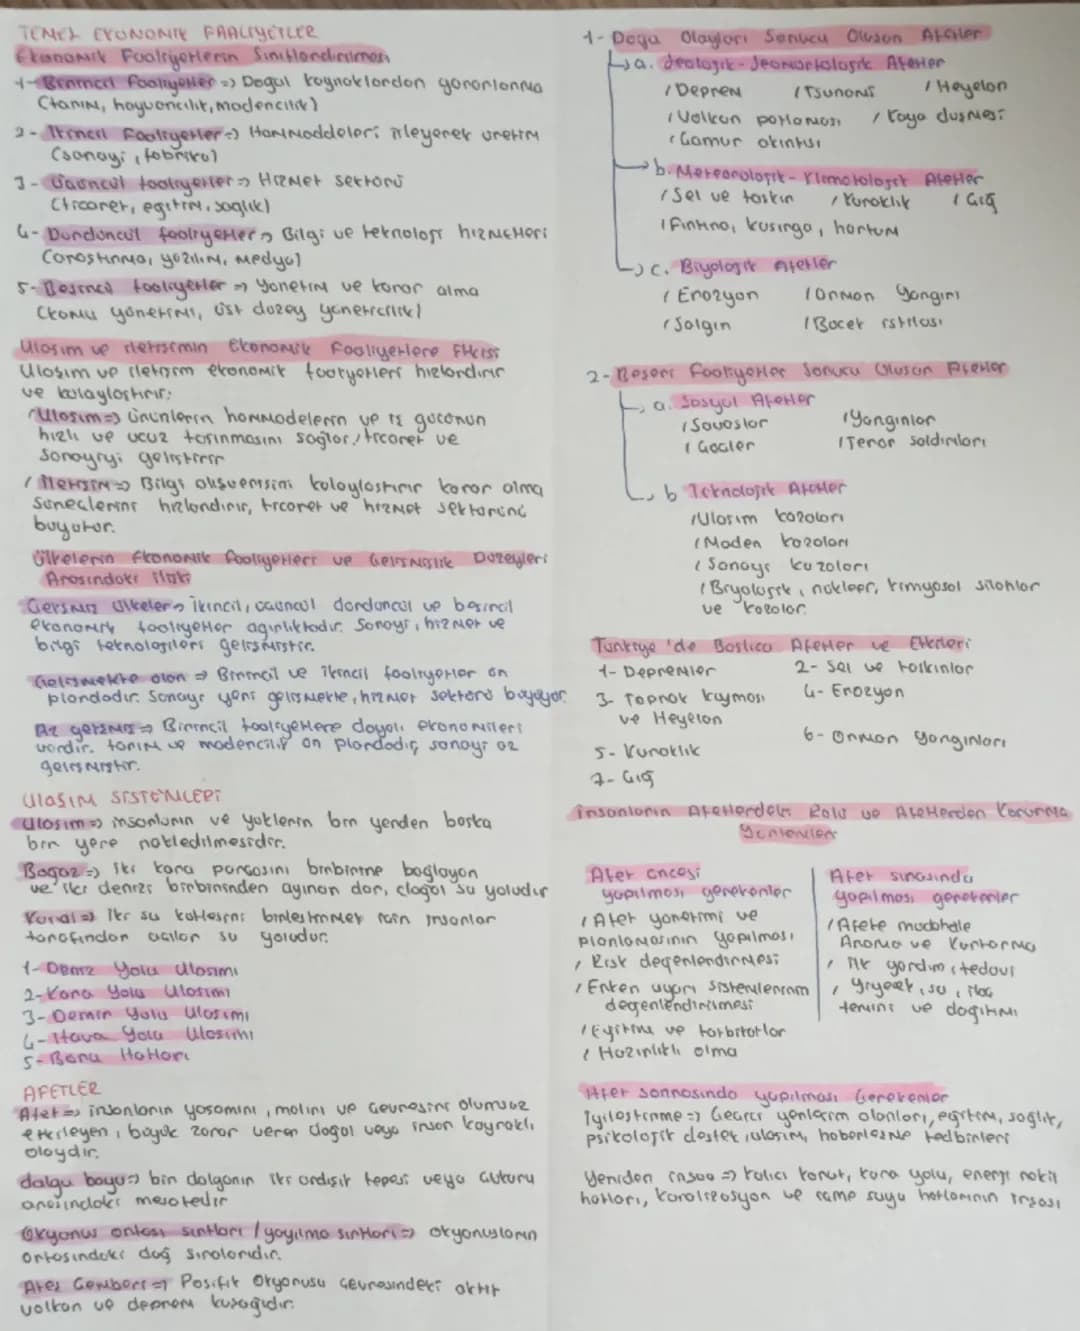 TEMEL EKONOMİK FAALİYETLER
Ekonomik Faaliyetlerin Sınıflandırılması
1- Birincil faaliyetler => Doğal kaynaklardan yararlanma
(tarım, hayvancılık, madencilik)
2- İkincil faaliyetler => Hammaddeleri işleyerek üretim
(sanayi, fabrika)
3- Üçüncül faaliyetler => Hizmet sektörü
(ticaret, eğitim, sağlık)
4- Dördüncül faaliyetler => Bilgi ve teknoloji hizmetleri
(araştırma, yazılım, medya)
5- Beşincil faaliyetler => Yönetim ve karar alma
(kamu yönetimi, üst düzey yöneticilik)
Ulaşım ve iletişimin Ekonomik Faaliyetlere Etkisi
Ulaşım ve iletişim ekonomik faaliyetleri hızlandırır
ve kolaylaştırır;
/ Ulaşım => ürünlerin hammadelerin ve iş gücünün
hızlı ve ucuz taşınmasını sağlar, ticaret ve
sanayiyi geliştirir
/ İletişim => Bilgi alışverişini kolaylaştırır karar alma
süreçlerini hızlandırır, ticaret ve hizmet sektörünü
büyütür.
Ülkelerin Ekonomik faaliyetleri ve Gelişmişlik Düzeyleri
Arasındaki İlişki
Gelişmiş ülkeler => İkincil, üçüncül dördüncül ve beşincil
ekonomik faaliyetler ağırlıktadır. Sanayi, hizmet ve
bilgi teknolojileri gelişmiştir.
Gelişmekte olan => Birincil ve ikincil faaliyetler ön
plandadır. Sanayi yeni gelişmekte, hizmet sektörü büyüyor.
Az gelişmiş => Birincil faaliyetlere dayalı ekonomileri
vardır. tarım ve madencilik ön plandadır, sanayi az
gelişmiştir.
ULAŞIM SİSTEMLERİ
Ulaşım => insanların ve yüklerin bir yerden başka
bir yere nakledilmesidir.
Boğaz => İki kara parçasını birbirine bağlayan
ve iki denizi birbirinden ayıran dar, doğal su yoludur
Kanal => İki su kütlesini birleştirmek için insanlar
tarafından açılan su yoludur.
1- Deniz Yolu Ulaşımı
2- Kara Yolu Ulaşımı
3- Demir Yolu Ulaşımı
4- Hava Yolu Ulaşımı
5- Boru Hatları
AFETLER
Afet => insanların yaşamını, malını ve çevresini olumsuz
etkileyen, büyük zarar veren doğal veya insan kaynaklı
olaydır.
dalga boyu => bir dalganın iki ardışık tepesi veya çukuru
arasındaki mesafedir
Okyanus ortası sırtları / yayılma sırtları => okyanusların
ortasındaki dağ sıralarıdır.
Ateş Çemberi => Pasifik Okyanusu çevresindeki aktif
volkan ve deprem kuşağıdır.
1- Doğa Olayları Sonucu Oluşan Afetler
a. Jeolojik - Jeomorfolojik Afetler
/ Deprem / Tsunami / Heyelan
/ Volkan patlaması / Kaya düşmesi
/ Çamur akıntısı
b. Meteorolojik - Klimatolojik Afetler
/ Sel ve taşkın / Kuraklık / Çığ
/ Fırtına, kasırga, hortum
c. Biyolojik Afetler
/ Erozyon / Orman Yangını
/ Salgın / Böcek istilası
2- Beşeri Faaliyetler Sonucu Oluşan Afetler
a. Sosyal Afetler
/ Savaşlar / Yangınlar
/ Göçler / Terör saldırıları
b Teknolojik Afetler
/ Ulaşım kazaları
/ Maden kazaları
/ Sanayi kazaları
/ Biyolojik, nükleer, kimyasal silahlar
ve kazalar.
Türkiye'de Başlıca Afetler ve Etkileri
1- Depremler 2- Sel ve taşkınlar
3- Toprak kayması 4- Erozyon
ve Heyelan
5- Kuraklık 6- Orman yangınları
7- Çığ
İnsanların Afetlerdeki Rolü ve Afetlerden Korunma
Yöntemleri
Afet öncesi
yapılması gerekenler
/ Afet yönetimi ve
planlamasının yapılması
/ Risk değerlendirmesi
/ Erken uyarı sistemlerinin
değerlendirilmesi
/ Eğitim ve tatbikatlar
/ Hazırlıklı olma
Afet sırasında
yapılması gerekenler
/ Afete müdahale
Arama ve Kurtarma
/ İlk yardım, tedavi
/ Yiyecek, su, ilaç
temini ve dağıtımı
Afet sonrasında yapılması Gerekenler
İyileştirme => Geçici yerleşim alanları, eğitim, sağlık,
psikolojik destek, ulaşım, haberleşme tedbirleri
Yeniden inşaa => Kalıcı konut, kara yolu, enerji nakil
hatları, kanalizasyon ve içme suyu hatlarının inşası